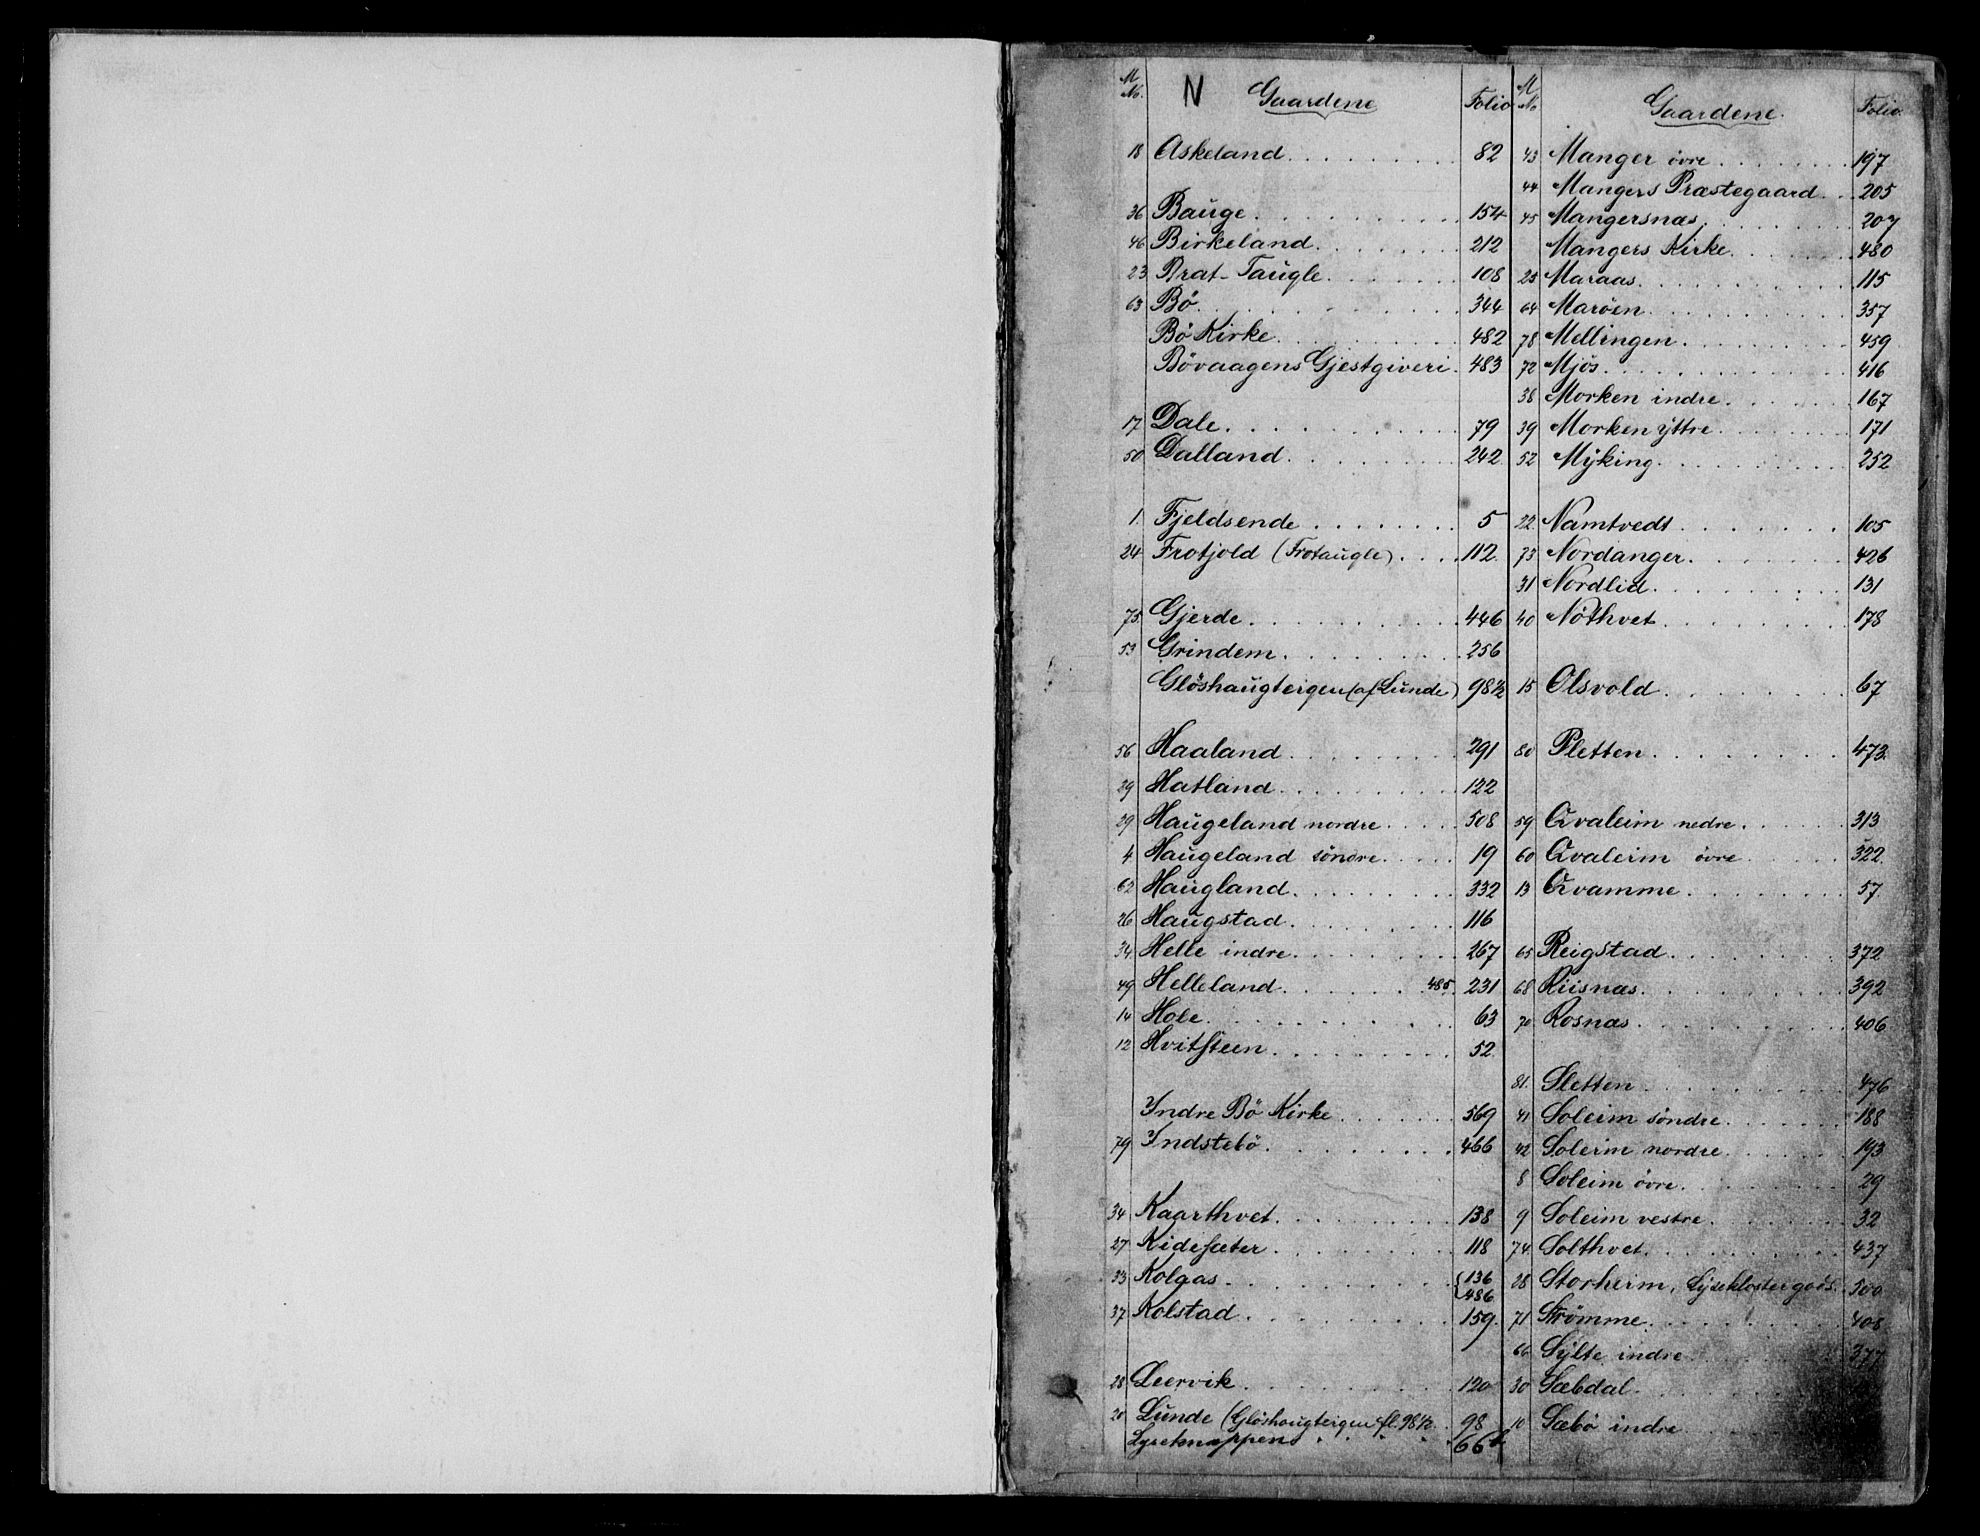 M No. N Gaardene Folio
18 Askeland 82
36 Bauge 154
46 Birkeland 212
23 Brat-Taugle 108
63 Bö 344
Bö Kirke 482
Bövaagens Gjestgiveri 483
17 Dale 79
50 Dalland 242
1. Fjeldsende 5
24 Frotjold (Frotaugle) 112
75 Gjerde 446
53 Grindem 256
Glöshaugteigen (af Lunde) 98½
56 Haaland 291
29 Hatland 122
29 Haugeland nordre 508
4 Haugeland söndre 19
62 Haugland 332
26 Haugstad 116
34 Helle indre 267
49 Helleland 485 231
14 Hole 63
12 Hvitsteen 52
Indre Bö Kirke 569
79 Indstebö 466
34 Kaarthvet 138
27 Kidesæter 118
33 Kolgas {136
486
37 Kolstad 159
28 Leervik 120
20 Lunde (Glöshaugteigen fl. 98½ 98
Lyreknappen 66b
M No Gaardene. Folio.
43 Manger övre 197
44 Mangers Præstegaard 205
45 Mangersnæs 207
Mangers Kirke 480
25 Maraas 115
64 Maröen 357
78 Mellingen 459
72 Mjös 416
38 Morken indre 167
39 Morken yttre 171
52 Myking 252
22 Namtvedt 105
73 Nordanger 426
31 Nordlid 131
40 Nöthvet 178
15 Olsvold 67
80 Pletten 473
59 Qvaleim nedre 313
60 Qvaleim övre 322
13 Qvamme 57
65 Reigstad 372
68 Riisnæs 392
70 Rosnæs 406
81. Sletten 476
41 Soleim söndre 188
42 Soleim nordre 193
8 Soleim övre 29
9 Soleim vestre 32
74 Solthvet 437
28 Storheim, Lyseklostergods. 500
71 Strömme 408
66 Sylte indre 377
30 Sæbdal
10 Sæbö indre